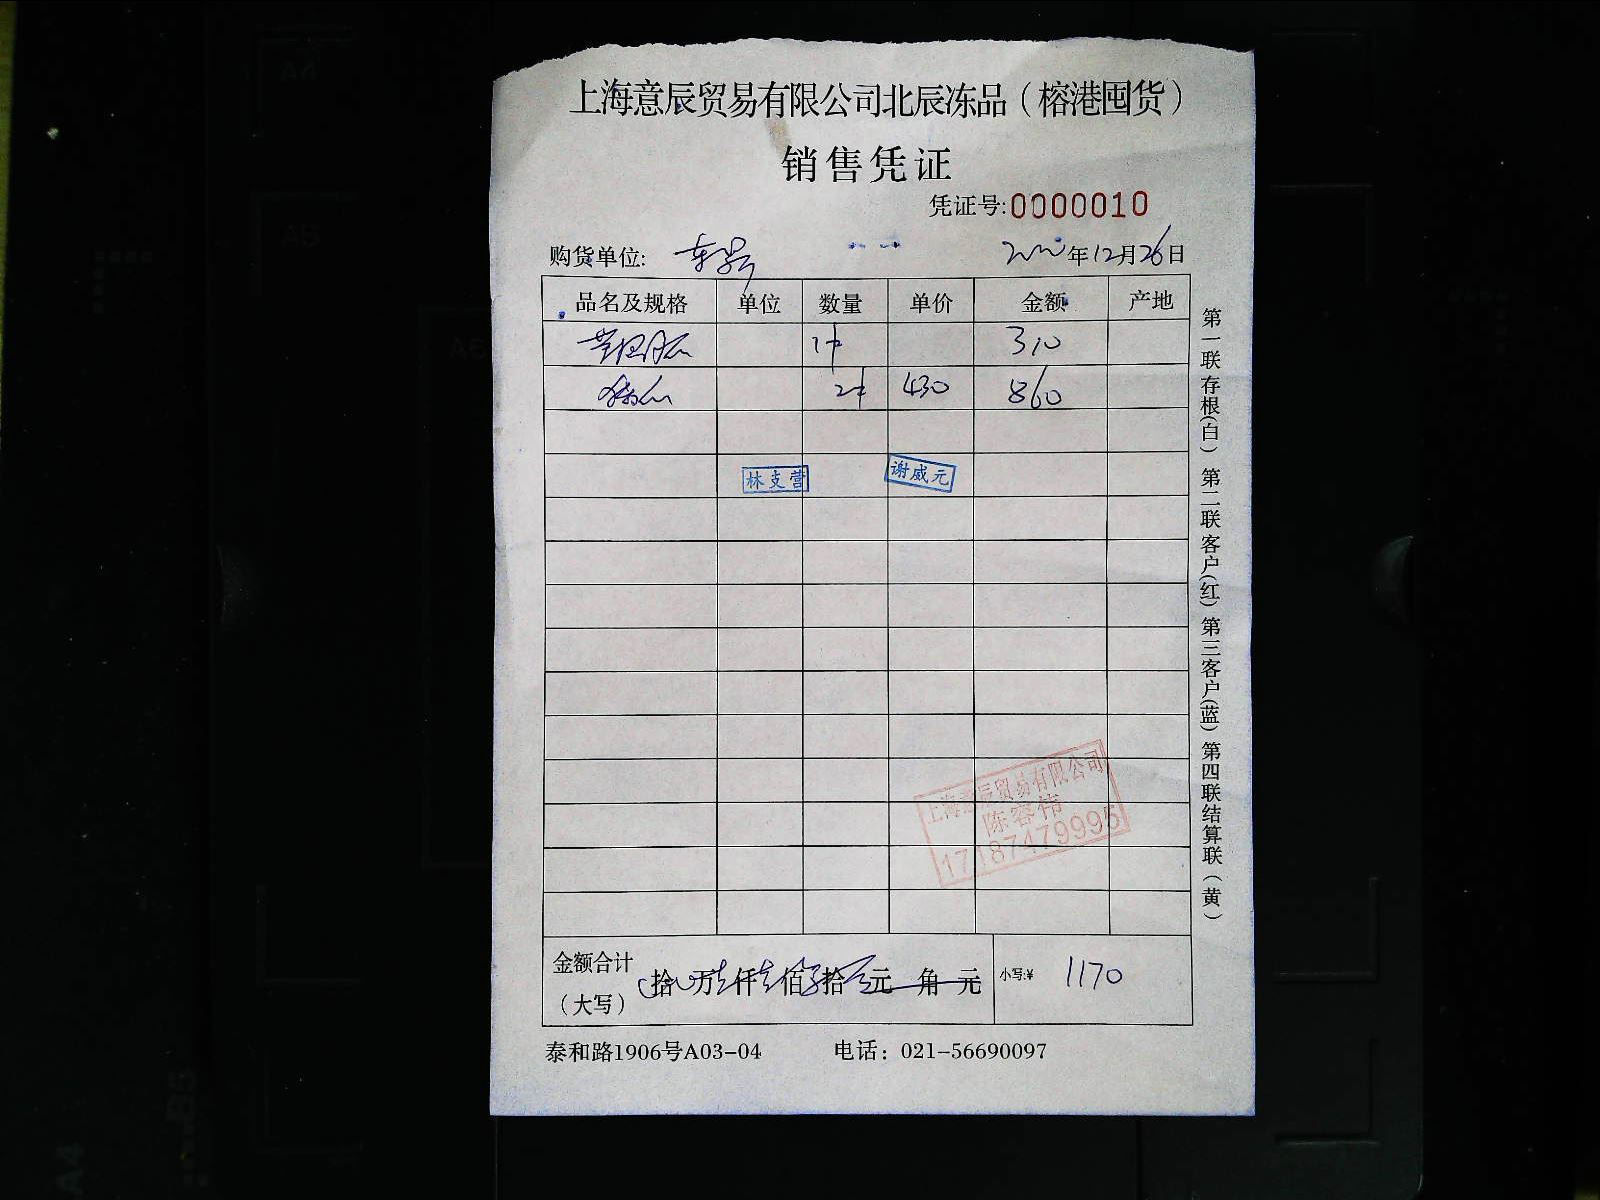 上海意辰贸易有限公司北辰冻品（榕港囤货）
销售凭证
凭证号:0000010
购货单位: 年12月26日
品名及规格 单位 数量 单价 金额 产地
310
430 860
林支营 谢威元
上海意辰贸易有限公司
陈容伟
17187479995
金额合计（大写） 拾 万壹仟壹佰 拾 元 角 元 小写:¥ 1170
泰和路1906号A03-04 电话：021-56690097
第一联存根(白) 第二联客户(红) 第三客户(蓝) 第四联结算联（黄）
A4
B5